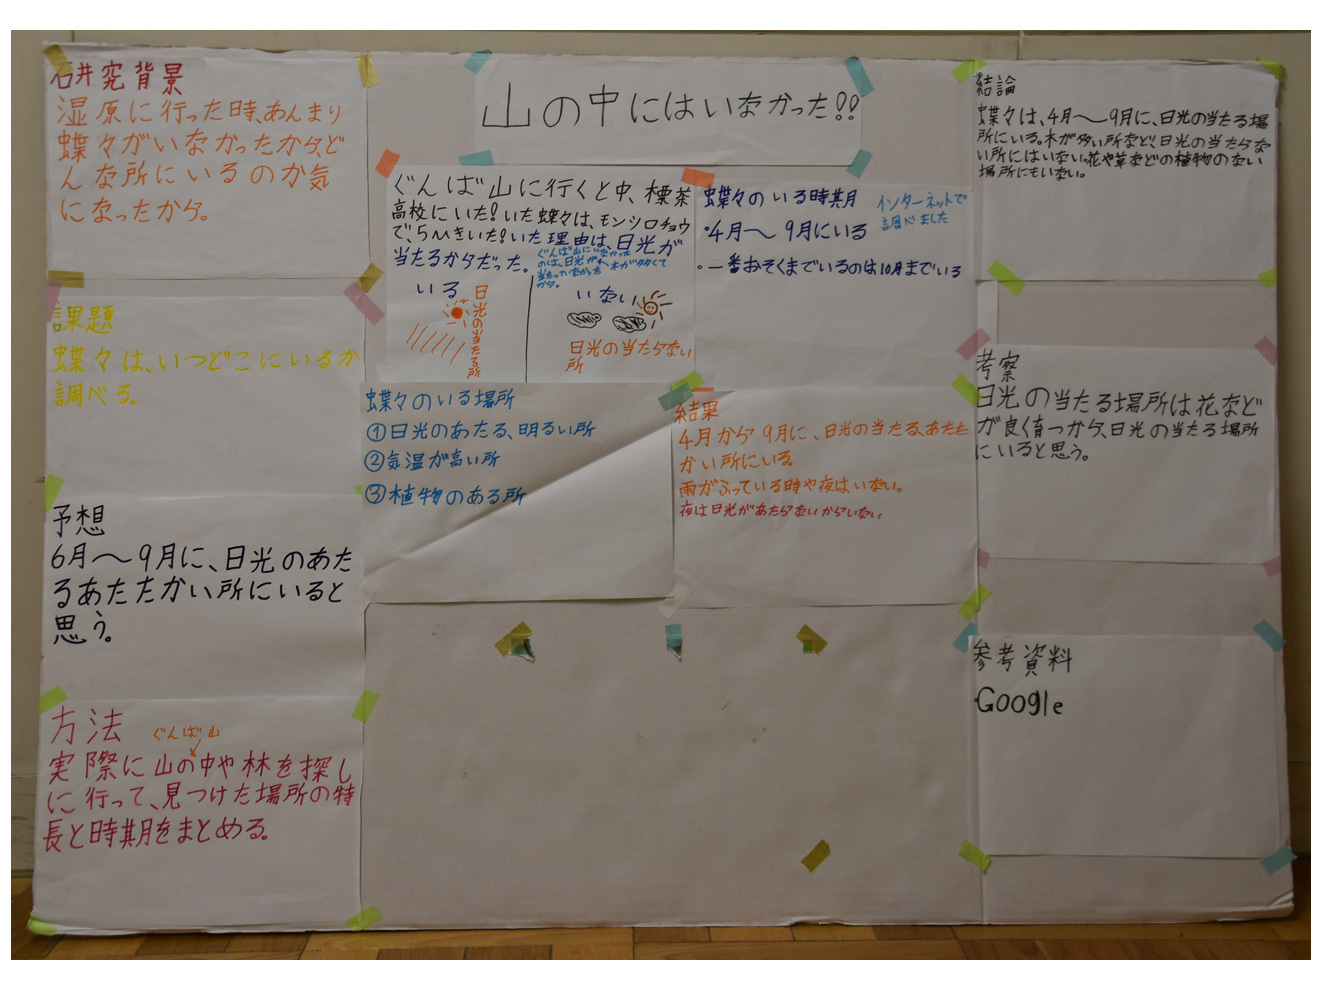 山の中にはいなかった!!
研究背景
湿原に行った時、あんまり
蝶々がいなかったから、ど
んな所にいるのか気
になったから。
課題
蝶々は、いつどこにいるか
調べる。
予想
6月〜9月に、日光のあた
るあたたかい所にいると
思う。
方法
ぐんば山
実際に山の中や林を探し
に行って、見つけた場所の特
長と時期をまとめる。
ぐんば山に行くと中、標茶
高校にいた!いた蝶々は、モンシロチョウ
で、5ひきいた!いた理由は、日光が
当たるからだった。
ぐんば山にいなかった
のは、日光が←木が多くて
当たっていなかった
から。
いる
日光の当たる所
いない
日光の当たらない
所
蝶々のいる時期
インターネットで
調べました
・4月〜9月にいる
・一番おそくまでいるのは10月までいる
蝶々のいる場所
①日光のあたる、明るい所
②気温が高い所
③植物のある所
結果
4月から9月に、日光の当たる、あたた
かい所にいる。
雨がふっている時や夜はいない。
夜は日光があたらないからいない
結論
蝶々は、4月〜9月に、日光の当たる場
所にいる。木が多い所など、日光の当たらな
い所にはいない。花や草などの植物のない
場所にもいない。
考察
日光の当たる場所は花など
が良く育つから、日光の当たる場所
にいると思う。
参考資料
・Google